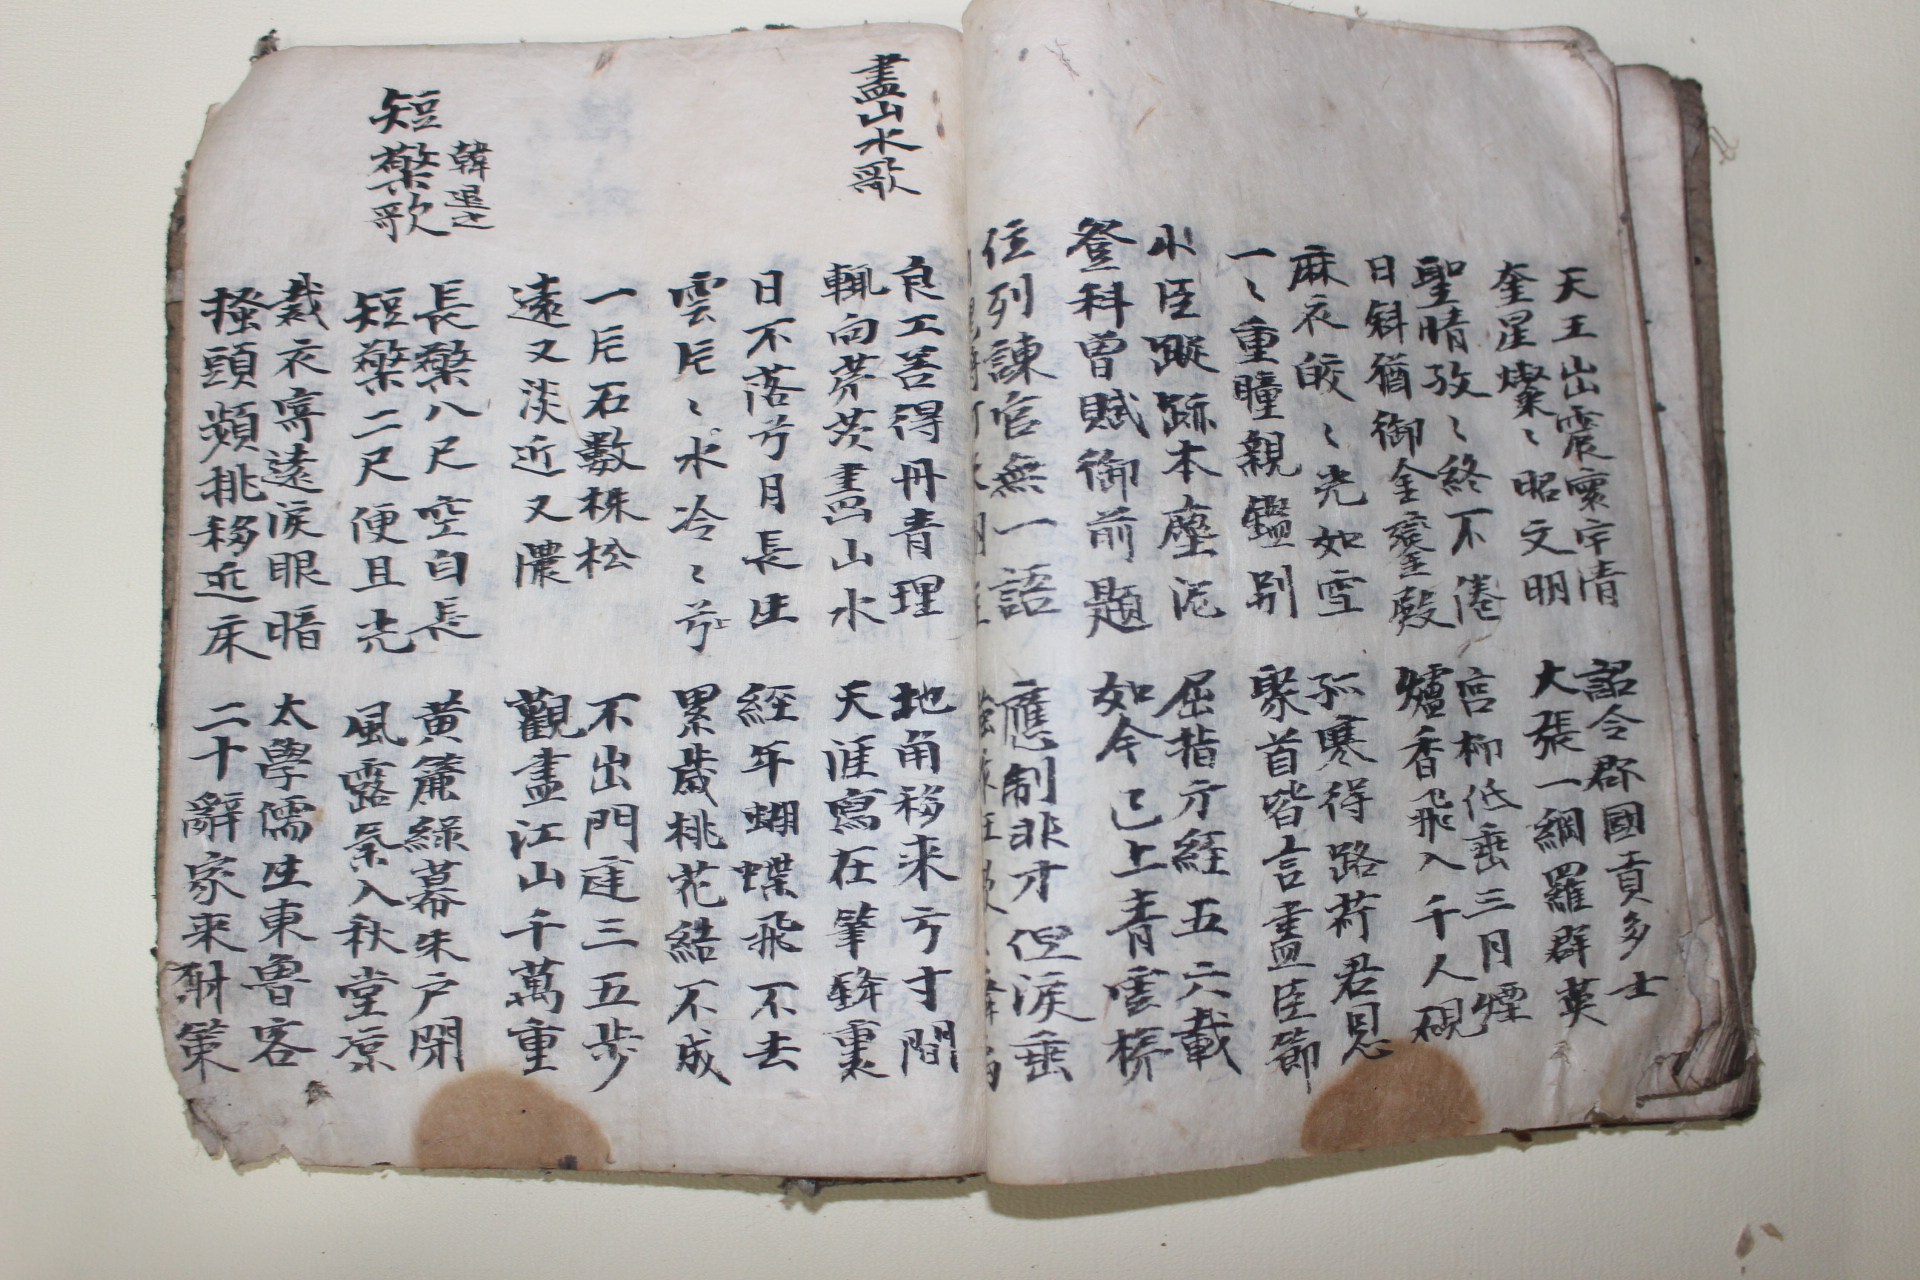 天王出震寰宇清 詔令郡國貢多士
奎星燦〻昭文明 大張一網羅群英
聖晴孜〻終不倦 宮柳低垂三月煙
日斜猶御金鑾殿 爐香飛入千人硯
麻衣皎〻光如雪 孤寒得路荷君恩
一〻重瞳親鑑別 聚首皆言盡臣節
小臣蹤跡本塵泥 屈指方経五六載
登科曾賦御前題 如今已上青雲梯
位列諫官無一語 應制非才但淚垂
盡山水歌
良工善得丹青理 地角移来方寸間
輒向茅茨畵山水 天涯寫在筆鋒裏
日不落兮月長生 経年蝴蝶飛不去
雲片〻水冷〻兮 累歲桃花結不成
一片石數株松 不出門庭三五步
遠又淡近又濃 觀盡江山千萬重
短檠歌
韓退之
長檠八尺空自長 黃簾綠幕朱戶閉
短檠二尺便且光 風露氣入秋堂凉
裁衣寄遠淚眼暗 太學儒生東魯客
搔頭頻挑移近床 二十辭家來射策